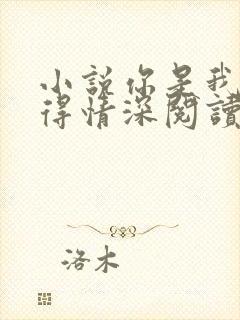 小説你是我
得情深閱讀
洛木